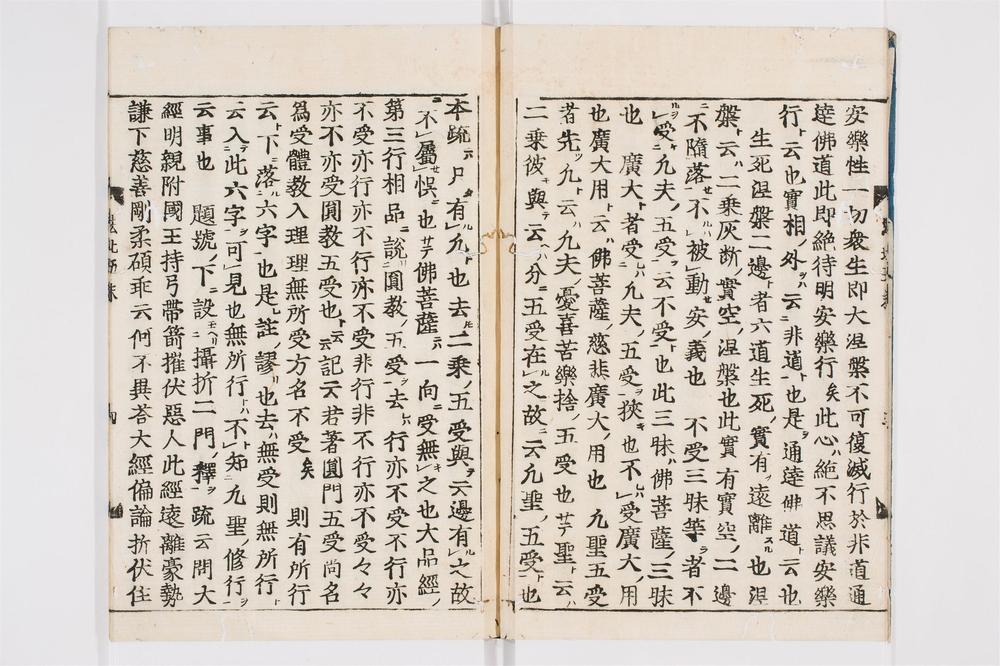 安樂性一切衆生即大涅槃不可復滅行於非道通
達佛道此即絶待明安樂行矣此心ハ絶不思議安樂
行ト云也實相ノ外ヲハ云非道ト也是ヲ通達佛道ト云也
生死涅槃二邊ト者六道生死ノ實有ヲ遠離スル也涅
槃ト云ハ二乘灰断ノ實空ノ涅槃也此實有實空ノ二邊
ニ不隋落セ不ルハ被動セ安ノ義也 不受三昧等ヲ者不
受ルヲハ凡夫ノ五受ヲ云不受ト也此三昧ハ佛菩薩ノ三昧
也 廣大ト者受レハ凡夫ノ五受ヲ狹キ也不レハ受廣大ノ用
也廣大用ト云ハ佛菩薩ノ慈悲廣大ノ用也 凡聖五受
者先ツ凡ト云ハ凡夫ノ憂喜苦樂捨ノ五受也サテ聖ト云ハ
二乘彼キ與テ云ハ分ニ五受在ルレ之故ニ云凡聖ノ五受ト也
本疏六尸タ有ル凡ト也去ルニ二乘ノ五受與ヲ云邊有ルレ之故
ニ不屬セ悞ニ也サテ佛菩薩六一向ニ受無キレ之也大品經ノ
第三行相品ニ說リ圓教ノ五受ヲ去レハ行亦不受不行亦
不受亦行亦不行亦不受非行非不行亦不受々々
亦不亦受圓教五受也ト云云記云若著圓門五受尚名
爲受體教入理理無所受方名不受矣 則有所行
云ト下ニ落ル六字ト也是レ註ノ謬リ也去ハ無受則無所行ト
云入テ此六字ヲ可見也無所行トハ不ト知ニ凡聖ノ修行ヲ
云事也 題號ノ下ニ設モヘリ攝折二門ノ釋ヲ疏云問大
經明親附國王持弓帶箭摧伏惡人此經遠離豪勢
謙下慈善剛柔碩乖云何不異荅大經偏論折伏住